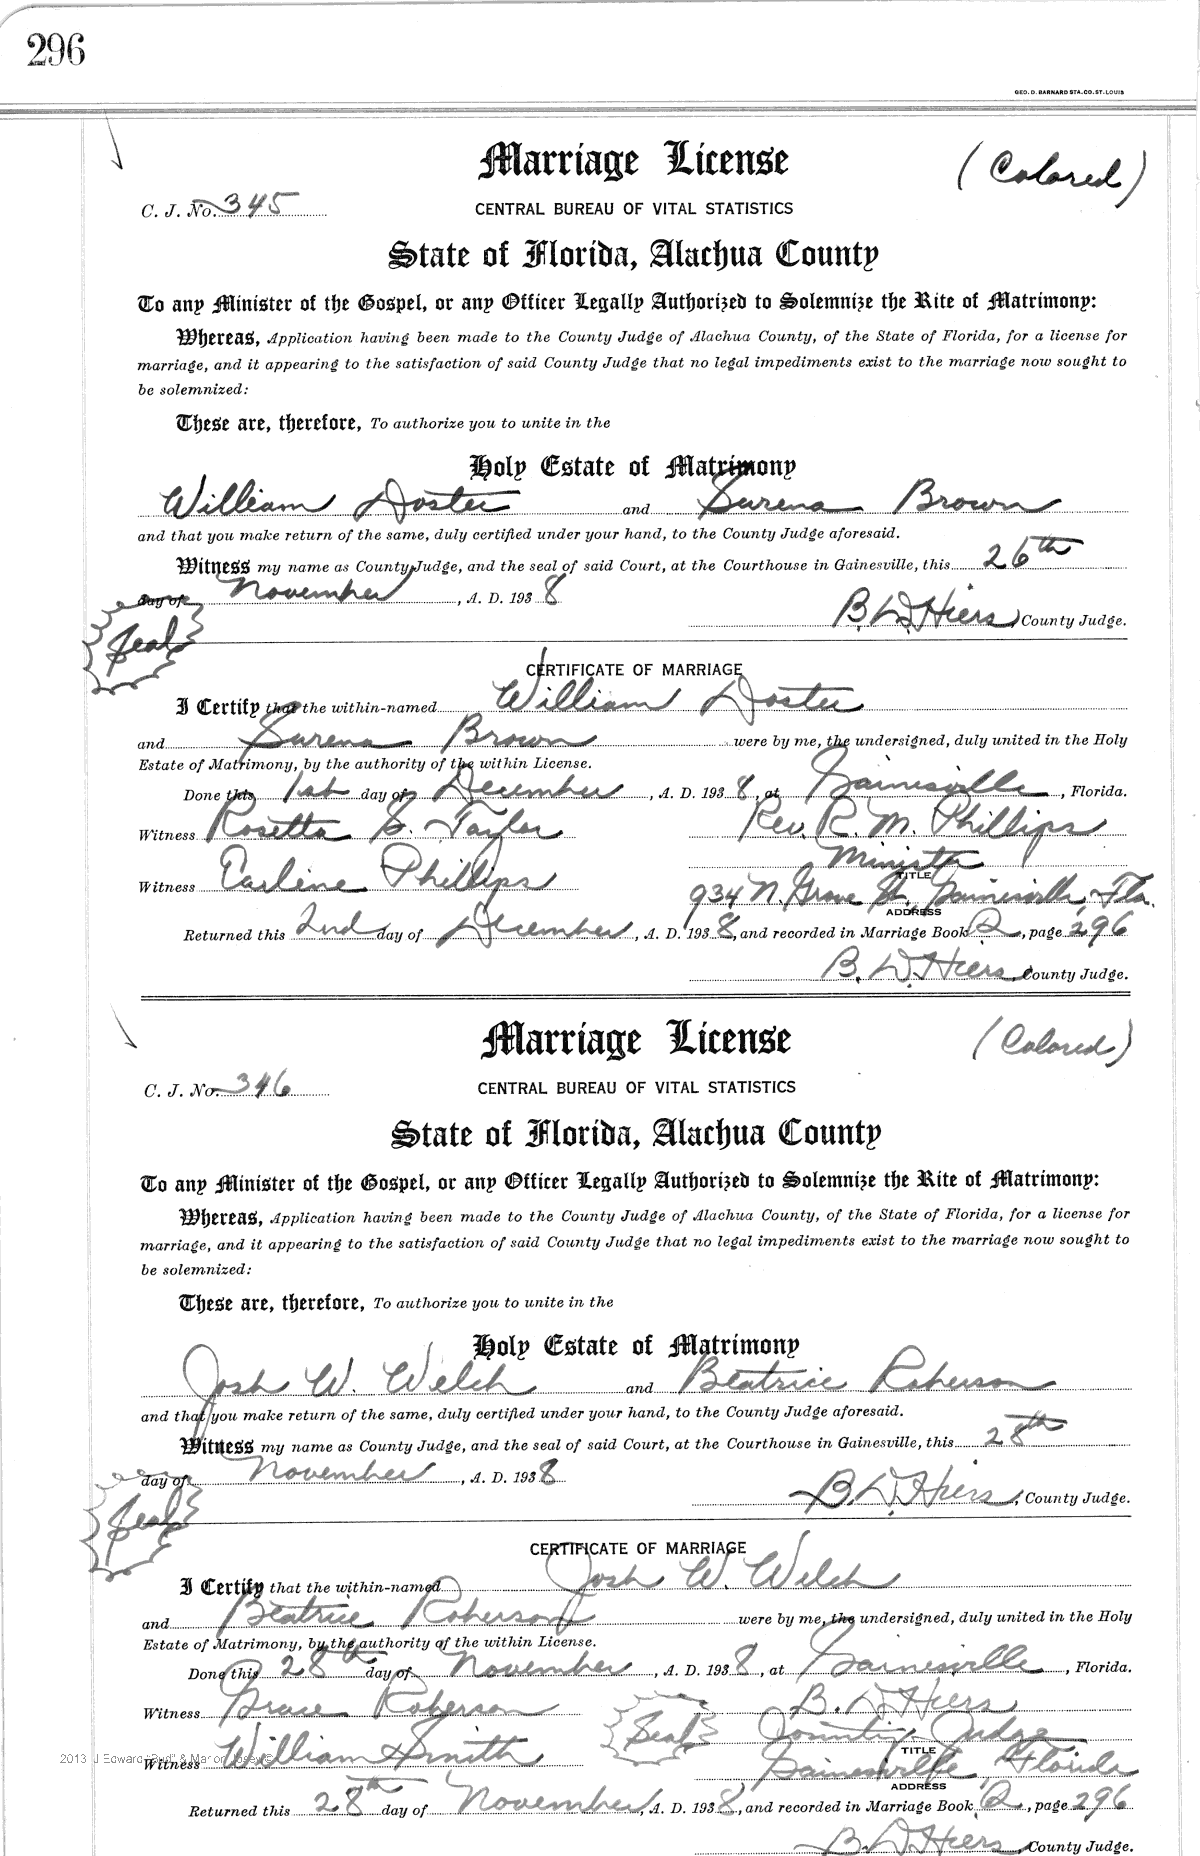 296
GEO. D. BARNARD STA. CO. ST. LOUIS
Marriage License (Colored)
C. J. No. 345 CENTRAL BUREAU OF VITAL STATISTICS
State of Florida, Alachua County
To any Minister of the Gospel, or any Officer Legally Authorized to Solemnize the Rite of Matrimony:
Whereas, Application having been made to the County Judge of Alachua County, of the State of Florida, for a license for
marriage, and it appearing to the satisfaction of said County Judge that no legal impediments exist to the marriage now sought to
be solemnized:
These are, therefore, To authorize you to unite in the
Holy Estate of Matrimony
William Doster and Surena Brown
and that you make return of the same, duly certified under your hand, to the County Judge aforesaid.
Witness my name as County Judge, and the seal of said Court, at the Courthouse in Gainesville, this 26th
day of November, A. D. 1938
Seal B. D. Hiers, County Judge.
CERTIFICATE OF MARRIAGE
I Certify that the within-named William Doster
and Surena Brown were by me, the undersigned, duly united in the Holy
Estate of Matrimony, by the authority of the within License.
Done this 1st day of December, A. D. 1938, at Gainesville, Florida.
Witness Rosetta S. Taylor Rev. R. M. Phillips
Minister
TITLE
Witness Earline Phillips 934 N. Grove St. Gainesville, Fla.
ADDRESS
Returned this 2nd day of December, A. D. 1938, and recorded in Marriage Book Q, page 296
B. D. Hiers, County Judge.
Marriage License (Colored)
C. J. No. 346 CENTRAL BUREAU OF VITAL STATISTICS
State of Florida, Alachua County
To any Minister of the Gospel, or any Officer Legally Authorized to Solemnize the Rite of Matrimony:
Whereas, Application having been made to the County Judge of Alachua County, of the State of Florida, for a license for
marriage, and it appearing to the satisfaction of said County Judge that no legal impediments exist to the marriage now sought to
be solemnized:
These are, therefore, To authorize you to unite in the
Holy Estate of Matrimony
Josh W. Welch and Beatrice Roberson
and that you make return of the same, duly certified under your hand, to the County Judge aforesaid.
Witness my name as County Judge, and the seal of said Court, at the Courthouse in Gainesville, this 28th
day of November, A. D. 1938
Seal B. D. Hiers, County Judge.
CERTIFICATE OF MARRIAGE
I Certify that the within-named Josh W. Welch
and Beatrice Roberson were by me, the undersigned, duly united in the Holy
Estate of Matrimony, by the authority of the within License.
Done this 28th day of November, A. D. 1938, at Gainesville, Florida.
Witness Bruce Roberson B. D. Hiers
Seal County Judge
TITLE
2013 J Edward "Bud" & Marion Josey©
Witness William Smith Gainesville Florida
ADDRESS
Returned this 28th day of November, A. D. 1938, and recorded in Marriage Book Q, page 296
B. D. Hiers, County Judge.